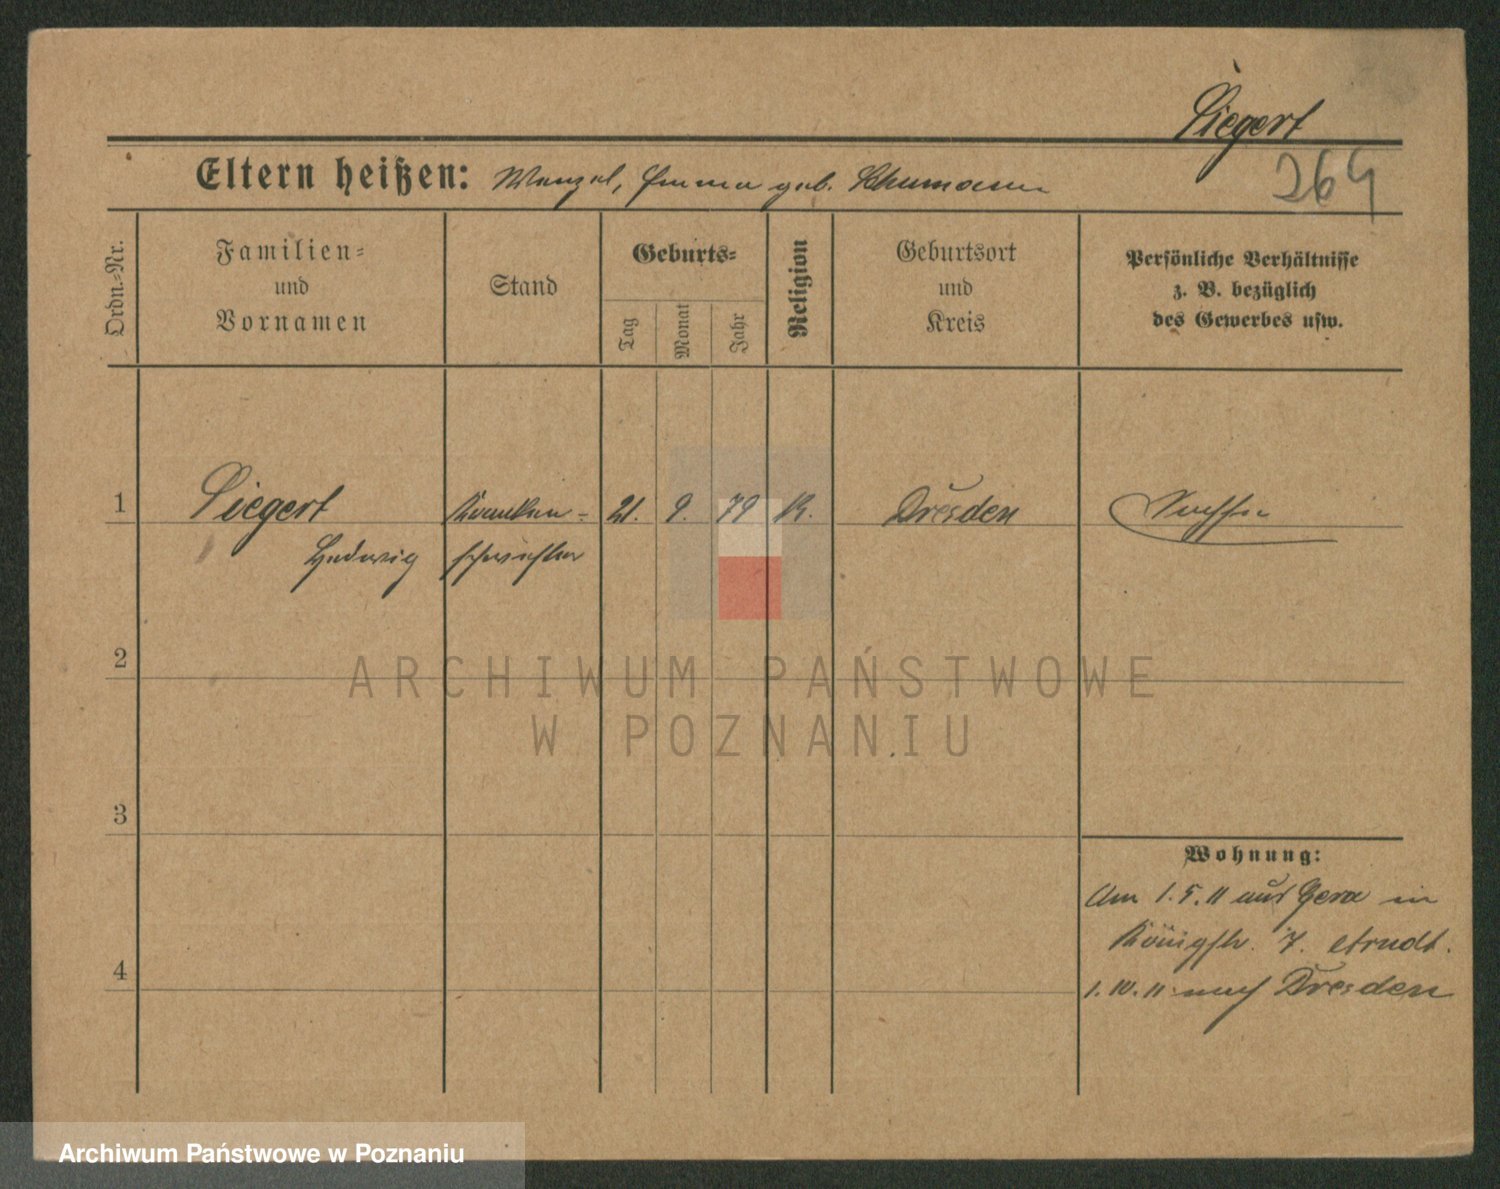 Siegert
264
Eltern heißen: Wenzel, Emma geb. Schumann
Ordn.-Nr.
Familien-
und
Vornamen
Stand
Geburts-
Tag
Monat
Jahr
Religion
Geburtsort
und
Kreis
Persönliche Verhältnisse
z. B. bezüglich
des Gewerbes usw.
1 Siegert Kranken- 21. 9. 79 K. Dresden Sachsen
Hedwig schwester
2
ARCHIWUM PAŃSTWOWE
W POZNANIU
3
Wohnung:
Am 1.5.11 aus Gera in
Königstr. 7. Arndt.
4
1.10.11 nach Dresden
Archiwum Państwowe w Poznaniu